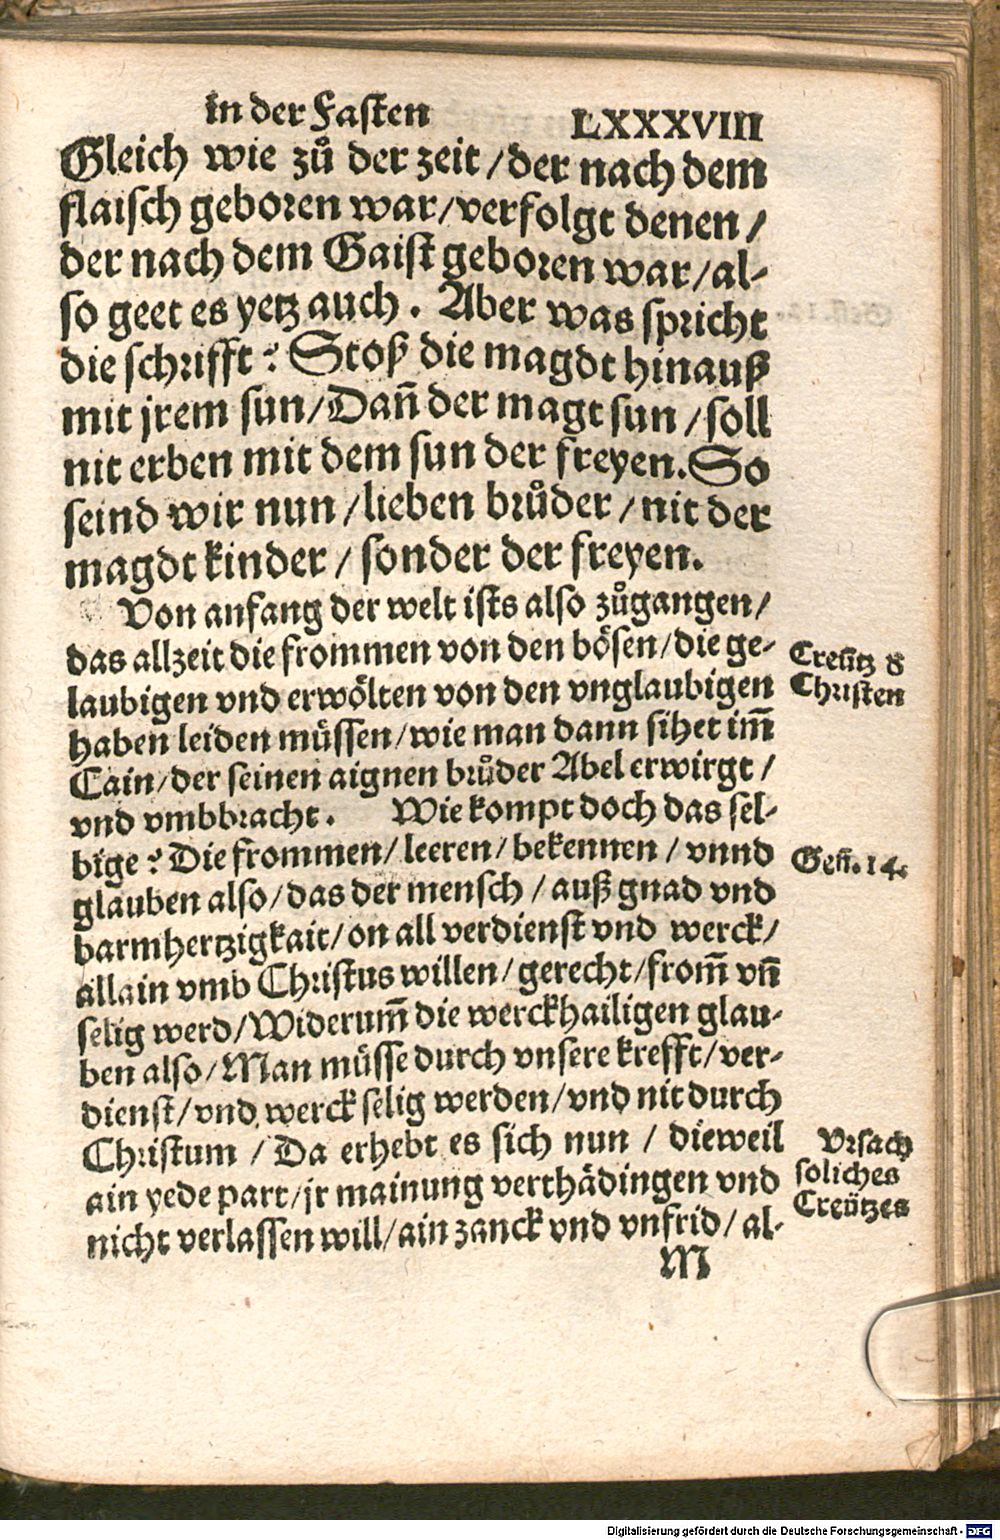 in der Fasten LXXXVIII
Gleich wie zů der zeit / der nach dem
flaisch geboren war / verfolgt denen /
der nach dem Gaist geboren war / al-
so geet es yetz auch . Aber was spricht
die schrifft ? Stoß die magdt hinauß
mit jrem sun / Dañ der magt sun / soll
nit erben mit dem sun der freyen. So
seind wir nun / lieben brůder / nit der
magdt kinder / sonder der freyen.
Von anfang der welt ists also zůgangen /
das allzeit die frommen von den bösen / die ge-
laubigen vnd erwölten von den vnglaubigen
haben leiden müssen / wie man dann sihet im̃
Cain / der seinen aignen brůder Abel erwirgt /
vnd vmbbracht . Wie kompt doch das sel-
bige ? Die frommen / leeren / bekennen / vnnd
glauben also / das der mensch / auß gnad vnd
barmhertzigkait / on all verdienst vnd werck /
allain vmb Christus willen / gerecht / from̃ vñ
selig werd / Widerum̃ die werckhailigen glau-
ben also / Man müsse durch vnsere krefft / ver-
dienst / vnd werck selig werden / vnd nit durch
Christum / Da erhebt es sich nun / dieweil
ain yede part / jr mainung verthädingen vnd
nicht verlassen will / ain zanck vnd vnfrid / al-
M
Creütz d
Christen
Gen̄. 14.
Vrsach
soliches
Creützes
Digitalisierung gefördert durch die Deutsche Forschungsgemeinschaft - DFG